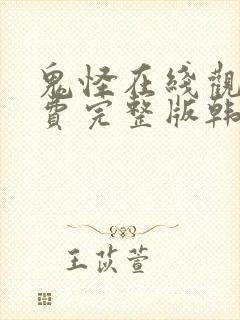 鬼怪在綫觀
費完整版韩
王苡萱